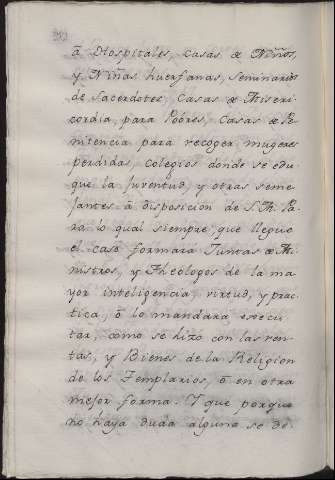 à Hospitales, casas de Niños,
y Niñas huerfanas, seminarios
de Sacerdotes, Casas de Miseri
cordia, para Pobres, Casas de Pe
nitencia para recoger mugeres
perdidas, colegios donde se edu
que la juventud, y otras seme
jantes à disposicion de S. M. Pa
ra lo qual siempre que llegue
el caso formara Juntas de Mi
nistros, y Theologos de la ma
yor inteligencia, virtud, y prac
tica, ò lo mandará execu
tar, como se hizo con las ren
tas, y Bienes de la Religion
de los Templarios, ò en otra
mejor forma. Y que porque
no haya duda alguna se de